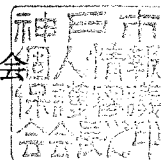 神戸市
会個人情報
保護審査
会会長之印